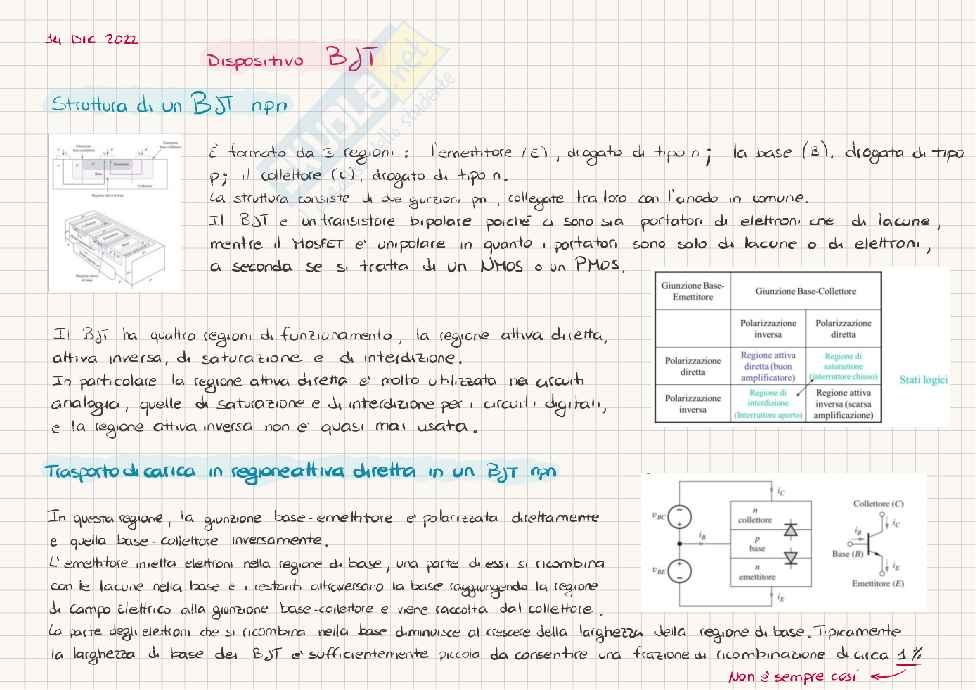 14 DIC 2022
Dispositivo BJT
Struttura di un BJT npn
È formato da 3 regioni: l'emettitore (E), drogato di tipo n; la base (B), drogata di tipo
p; il collettore (C), drogato di tipo n.
La struttura consiste di due giunzioni pn, collegate tra loro con l'anodo in comune.
Il BJT è un transistore bipolare poiché ci sono sia portatori di elettroni che di lacune,
mentre il MOSFET e' unipolare in quanto i portatori sono solo di lacune o di elettroni,
a seconda se si tratta di un NMOS o un PMOS.
Giunzione Base-Emettitore
Giunzione Base-Collettore
Polarizzazione inversa
Polarizzazione diretta
Polarizzazione diretta
Regione attiva diretta (buon amplificatore)
Regione di saturazione (interruttore chiuso)
Stati logici
Polarizzazione inversa
Regione di interdizione (Interruttore aperto)
Regione attiva inversa (scarsa amplificazione)
Il BJT ha quattro regioni di funzionamento, la regione attiva diretta,
attiva inversa, di saturazione e di interdizione.
In particolare la regione attiva diretta e' molto utilizzata nei circuiti
analogici, quelle di saturazione e di interdizione per i circuiti digitali,
e la regione attiva inversa non e' quasi mai usata.
Trasporto di carica in regione attiva diretta in un BJT npn
In questa regione, la giunzione base-emettitore e' polarizzata direttamente
e quella base-collettore inversamente.
L'emettitore inietta elettroni nella regione di base, una parte di essi si ricombina
con le lacune nella base e i restanti attraversano la base raggiungendo la regione
di campo elettrico alla giunzione base-collettore e viene raccolta dal collettore.
La parte degli elettroni che si ricombina nella base diminuisce al crescere della larghezza della regione di base. Tipicamente
la larghezza di base dei BJT e' sufficientemente piccola da consentire una frazione di ricombinazione di circa 1%
Non è sempre così
iC
vBC
n
collettore
iB
p
base
vBE
n
emettitore
iE
Collettore (C)
iC
iB
Base (B)
iE
Emettitore (E)